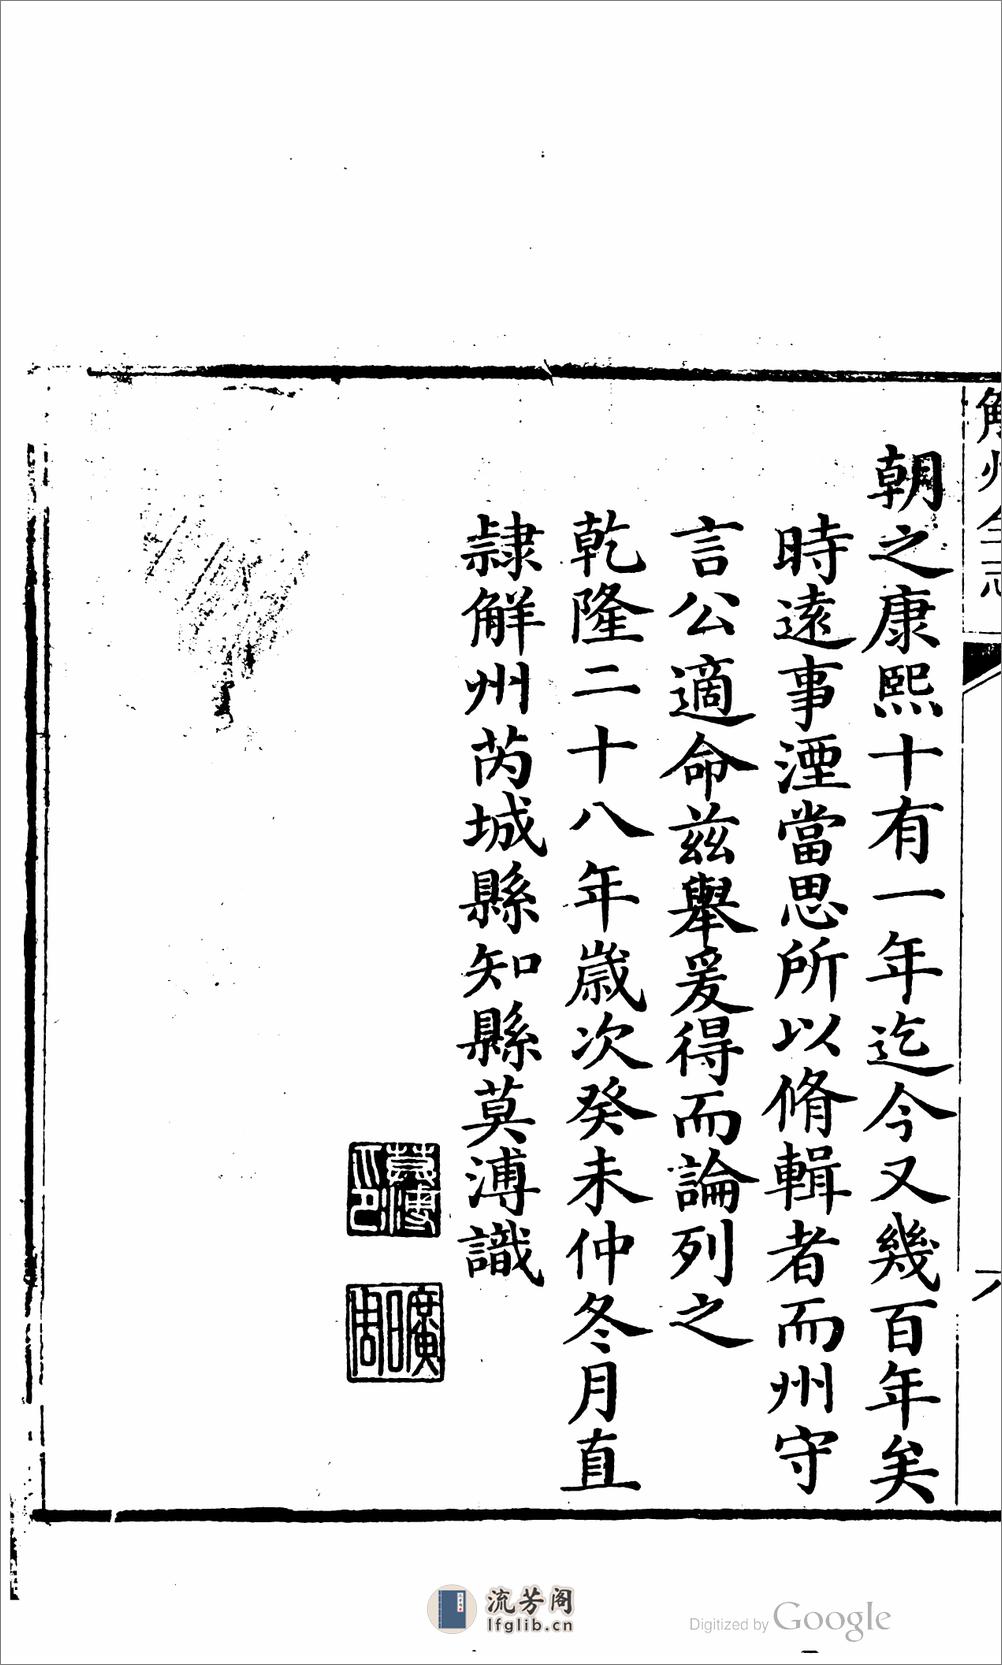 解州全志
六
朝之康熙十有一年迄今又幾百年矣
時遠事湮當思所以脩輯者而州守
言公適命兹舉爰得而論列之
乾隆二十八年歲次癸未仲冬月直
隷解州芮城縣知縣莫溥識
莫溥之印
曠周
流芳阁
lfglib.cn
Digitized by Google